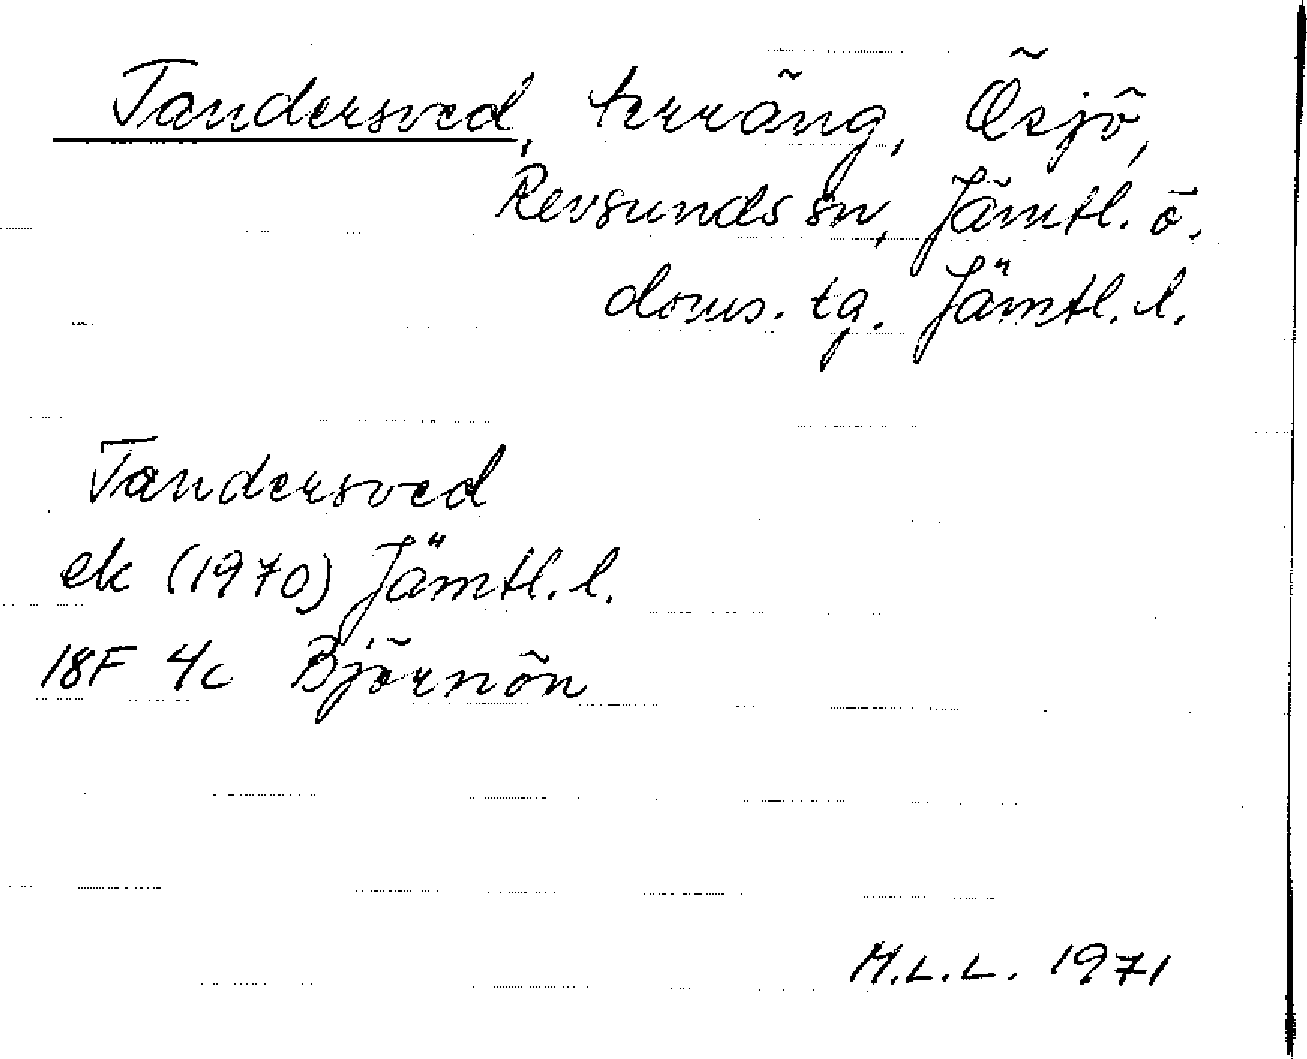 Tandersved, terräng, Ösjö,
Revsunds sn, Jämtl. ö.
doms. tg. Jämtl. l.
Tandersved
ek (1970) Jämtl. l.
18F 4c Björnön
M.L.L. 1971